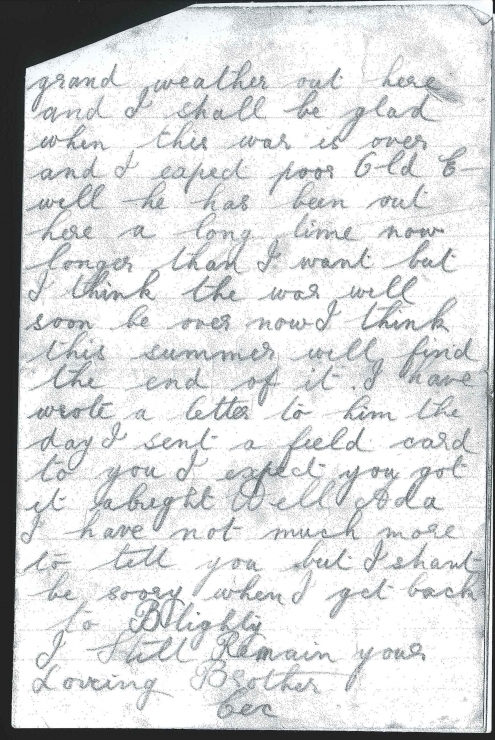 grand weather out here
and I shall be glad
when this war is over
and I exped poor Old E-
will he has been out
here a long time now
longer than I want but
I think the war will
soon be over now I think
this summer will find
the end of it. I have
wrote a letter to him the
day I sent a field card
to you I expect you got
it alright Well Ada
I have not much more
to tell you but I shant
be soory when I get back
to Blighty
I Still Remain your
Loveing Brother
Cec